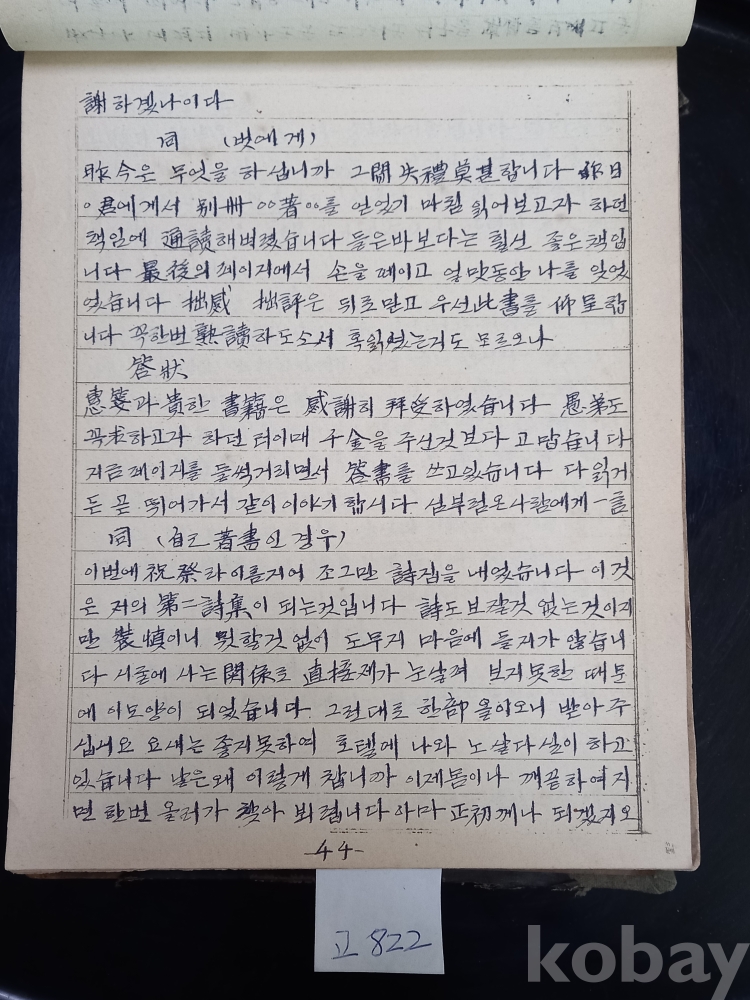 謝하겠나이다
同 (벗에게)
昨今은 무엇을 하십니까 그間 失禮莫甚합니다 昨日
○君에게서 別冊 ○○著○○를 얻었기 마침 읽어보고자 하던
책임에 通讀해버렸습니다 들은바보다는 훨신 좋은책입
니다 最後의 페이지에서 손을 떼이고 얼맛동안 나를 잊었
었습니다 拙感 拙評은 뒤로밀고 우선此書를 仰呈합
니다 꼭한번 熟讀하도소서 혹읽셨는지도 모르오나
答狀
惠箋과 貴한 書籍은 感謝히 拜受하였습니다 愚弟도
꼭求하고자 하던 터이매 千金을 주신것보다 고맙습니다
지금 페이지를 들썩거리면서 答書를 쓰고있습니다 다읽거
든 곧 뛰어가서 같이이야기 합시다 심부럼온사람에게 一言
同 (自己 著書인 경우)
이번에 祝祭라이름지어 조그만 詩집을 내었습니다 이것
은 저의 第二詩集이 되는것입니다 詩도보잘것 없는것이지
만 裝慎이니 뭣할것 없이 도무지 마음에 들지가 않습니
다 시굴에 사는關係로 直接제가 눈살펴 보지못한 때문
에 이모양이 되었습니다 그런대로 한部 올이오니 받아주
십시요 요새는 좋지못하여 호텔에 나와 노살다싶이 하고
있습니다 날은왜 이렇게 찹니까 이제봄이나 깨끝하여지
면 한번 올러가 찾아 뵈렵니다 아마 正初께나 되겠지오
-44-
고822
kobay